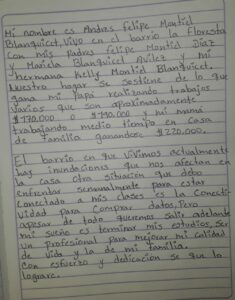 Mi nombre es Andrés felipe Montiel
Blanquicet, Vivo en el barrio la Floresta
con mis Padres felipe Montiel Díaz
y Mariela Blanquicet Avilez y mi
hermana Kelly Montiel Blanquicet.
Nuestro hogar se sostiene de lo que
gana mi Papá realizando trabajos
Varios que son aproximadamente
$170.000 o $190.000 y mi mamá
trabajando medio tiempo en casa
de familia ganandose $220.000.
El barrio en que vivimos actualmente
hay inundaciones que nos afectan en
la casa otra situación que debo
enfrentar semanalmente para estar
conectado a mis clases es la conecti-
vidad para comprar datos, Pero
apesar de todo queremos salir adelante
mi sueño es terminar mis estudios, ser
un profesional para mejorar mi calidad
de vida y la de mi familia.
Con esfuerzo y dedicación se que lo
lograre.